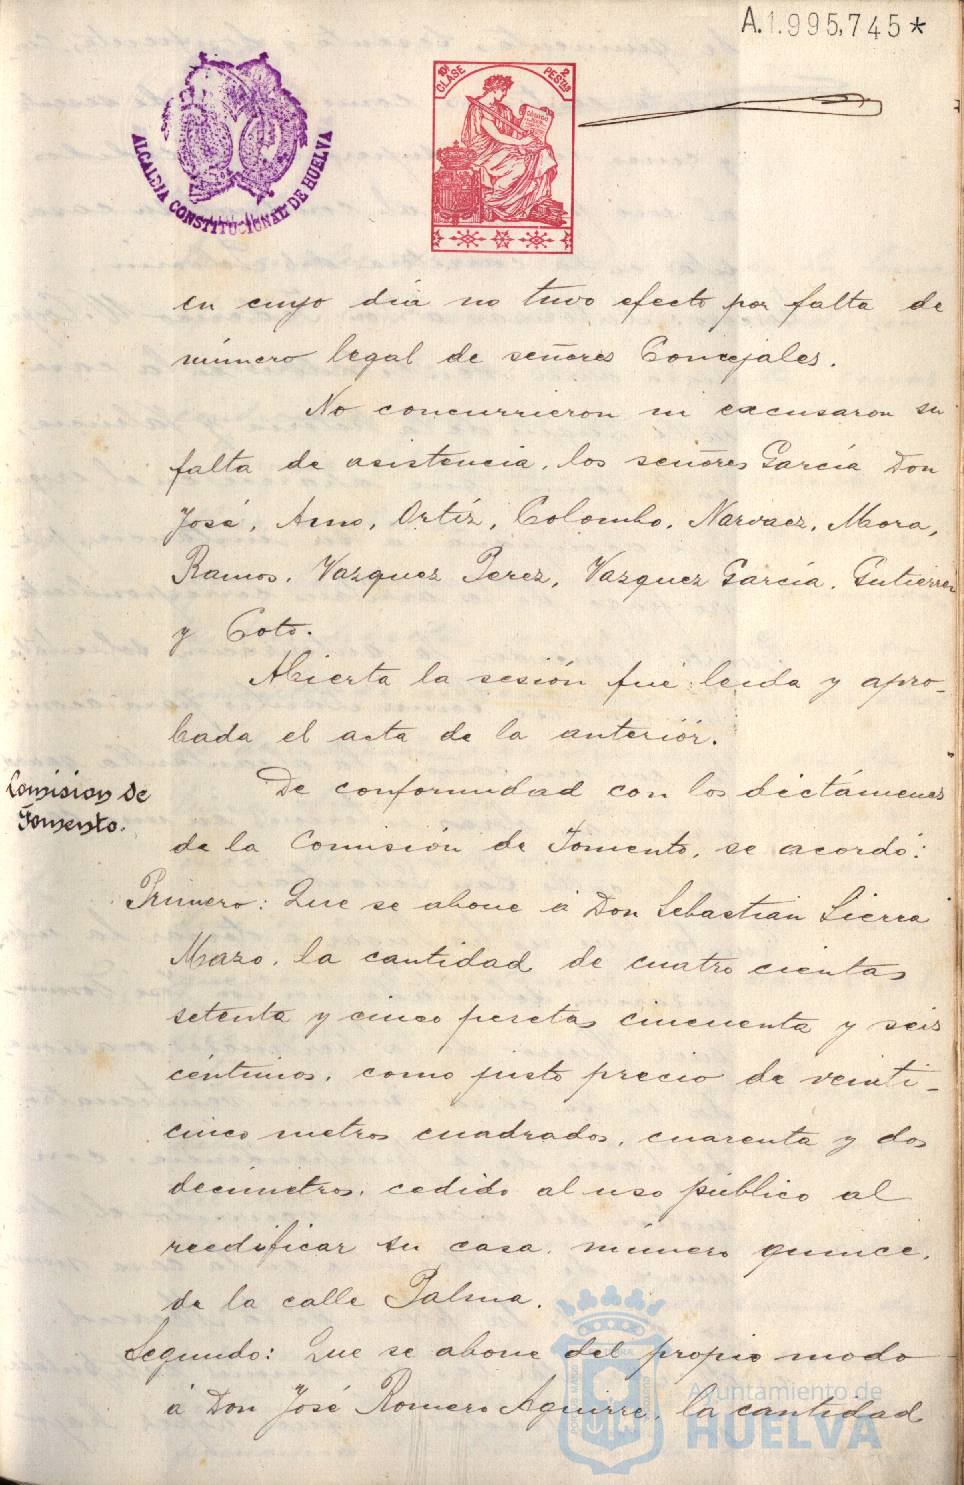 A.1.995,745*
ALCALDIA CONSTITUCIONAL DE HUELVA
10ª CLASE 2 PESETAS
en cuyo día no tuvo efecto por falta de
número legal de señores Concejales.
No concurrieron ni excusaron su
falta de asistencia, los señores García Don
José, Amo, Ortíz, Colombo, Narvaez, Mora,
Ramos, Vazquez Perez, Vazquez García, Gutierrez
y Coto.
Abierta la sesión fué leida y apro-
bada el acta de la anteriór.
Comision de
Fomento.
De conformidad con los dictámenes
de la Comisión de Fomento, se acordó:
Primero: Que se abone á Don Sebastián Sierra
Mazo, la cantidad de cuatro cientas
setenta y cinco pesetas cincuenta y seis
céntimos, como justo precio de veinti-
cinco metros cuadrados, cuarenta y dos
decimetros, cedido al uso público al
reedificar su casa, número quince,
de la calle Palma.
Segundo: Que se abone del propio modo
á Don José Romero Aguirre, la cantidad
Ayuntamiento de
HUELVA